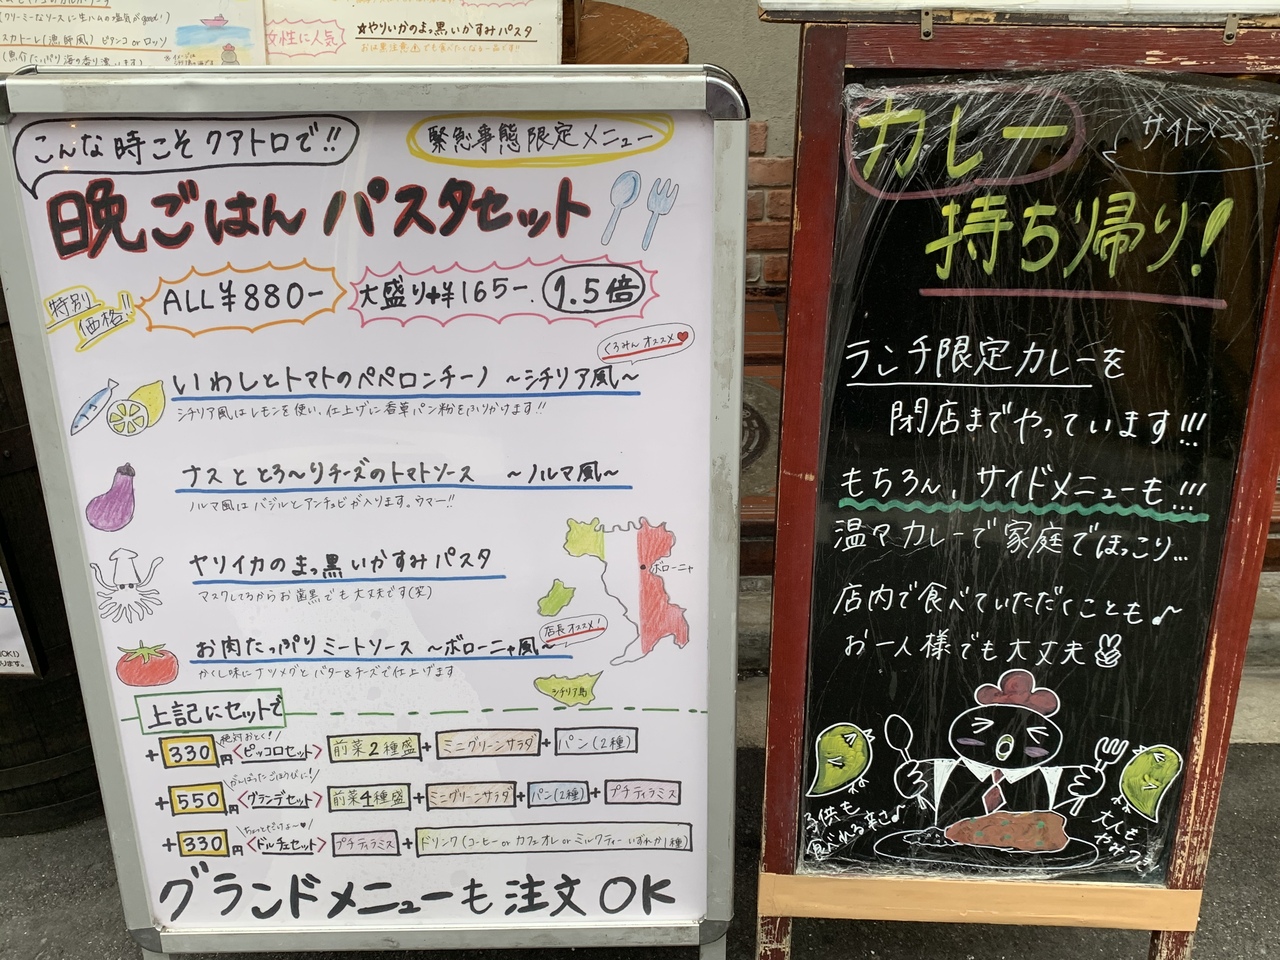 (クリーミーなソースに生ハムの塩気がgood!)
スカトーレ(漁師風) ビアンコ or ロッソ
(魚介たっぷり海の香り漂います)
女性に人気
☆やりいかのまっ黒いかすみパスタ
お歯黒注意
こんな時こそクアトロで!!
緊急事態限定メニュー
晩ごはん パスタセット
特別価格!!
ALL ¥880-
大盛り+¥165-. 1.5倍
くろみん オススメ♥
いわしとトマトのペペロンチーノ ~シチリア風~
シチリア風はレモンを使い、仕上げに香草パン粉をふりかけます!!
ナスととろ~りチーズのトマトソース ~ノルマ風~
ノルマ風はバジルとアンチョビが入ります。ウマー!!
ヤリイカのまっ黒いかすみパスタ
マスクしてるからお歯黒でも大丈夫です(笑)
ボローニャ
店長オススメ!
お肉たっぷりミートソース ~ボローニャ風~
かくし味にナツメグとバター&チーズで仕上げます
シチリア島
上記にセットで
絶対おとく!
+330円 <ピッコロセット> 前菜2種盛+ミニグリーンサラダ+パン(2種)
がんばったごほうびに!
+550円 <グランデセット> 前菜4種盛+ミニグリーンサラダ+パン(2種)+プチティラミス
ちょっとだけよ~♥
+330円 <ドルチェセット> プチティラミス+ドリンク(コーヒー or カフェオレ or ミルクティー いずれか1種)
グランドメニューも注文OK
カレー
サイドメニューも
持ち帰り!
ランチ限定カレーを
閉店までやっています!!!
もちろん、サイドメニューも!!!
温々カレーで家庭でほっこり...
店内で食べていただくことも♪
お一人様でも大丈夫✌
子供も
食べれる辛さ♪
大人も
やみつき